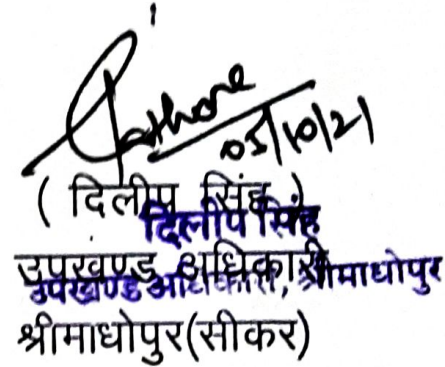 Rathore
05/10/21
( दिलीप सिंह )
दिलीप सिंह
उपखण्ड अधिकारी
उपखण्ड अधिकारी, श्रीमाधोपुर
श्रीमाधोपुर(सीकर)